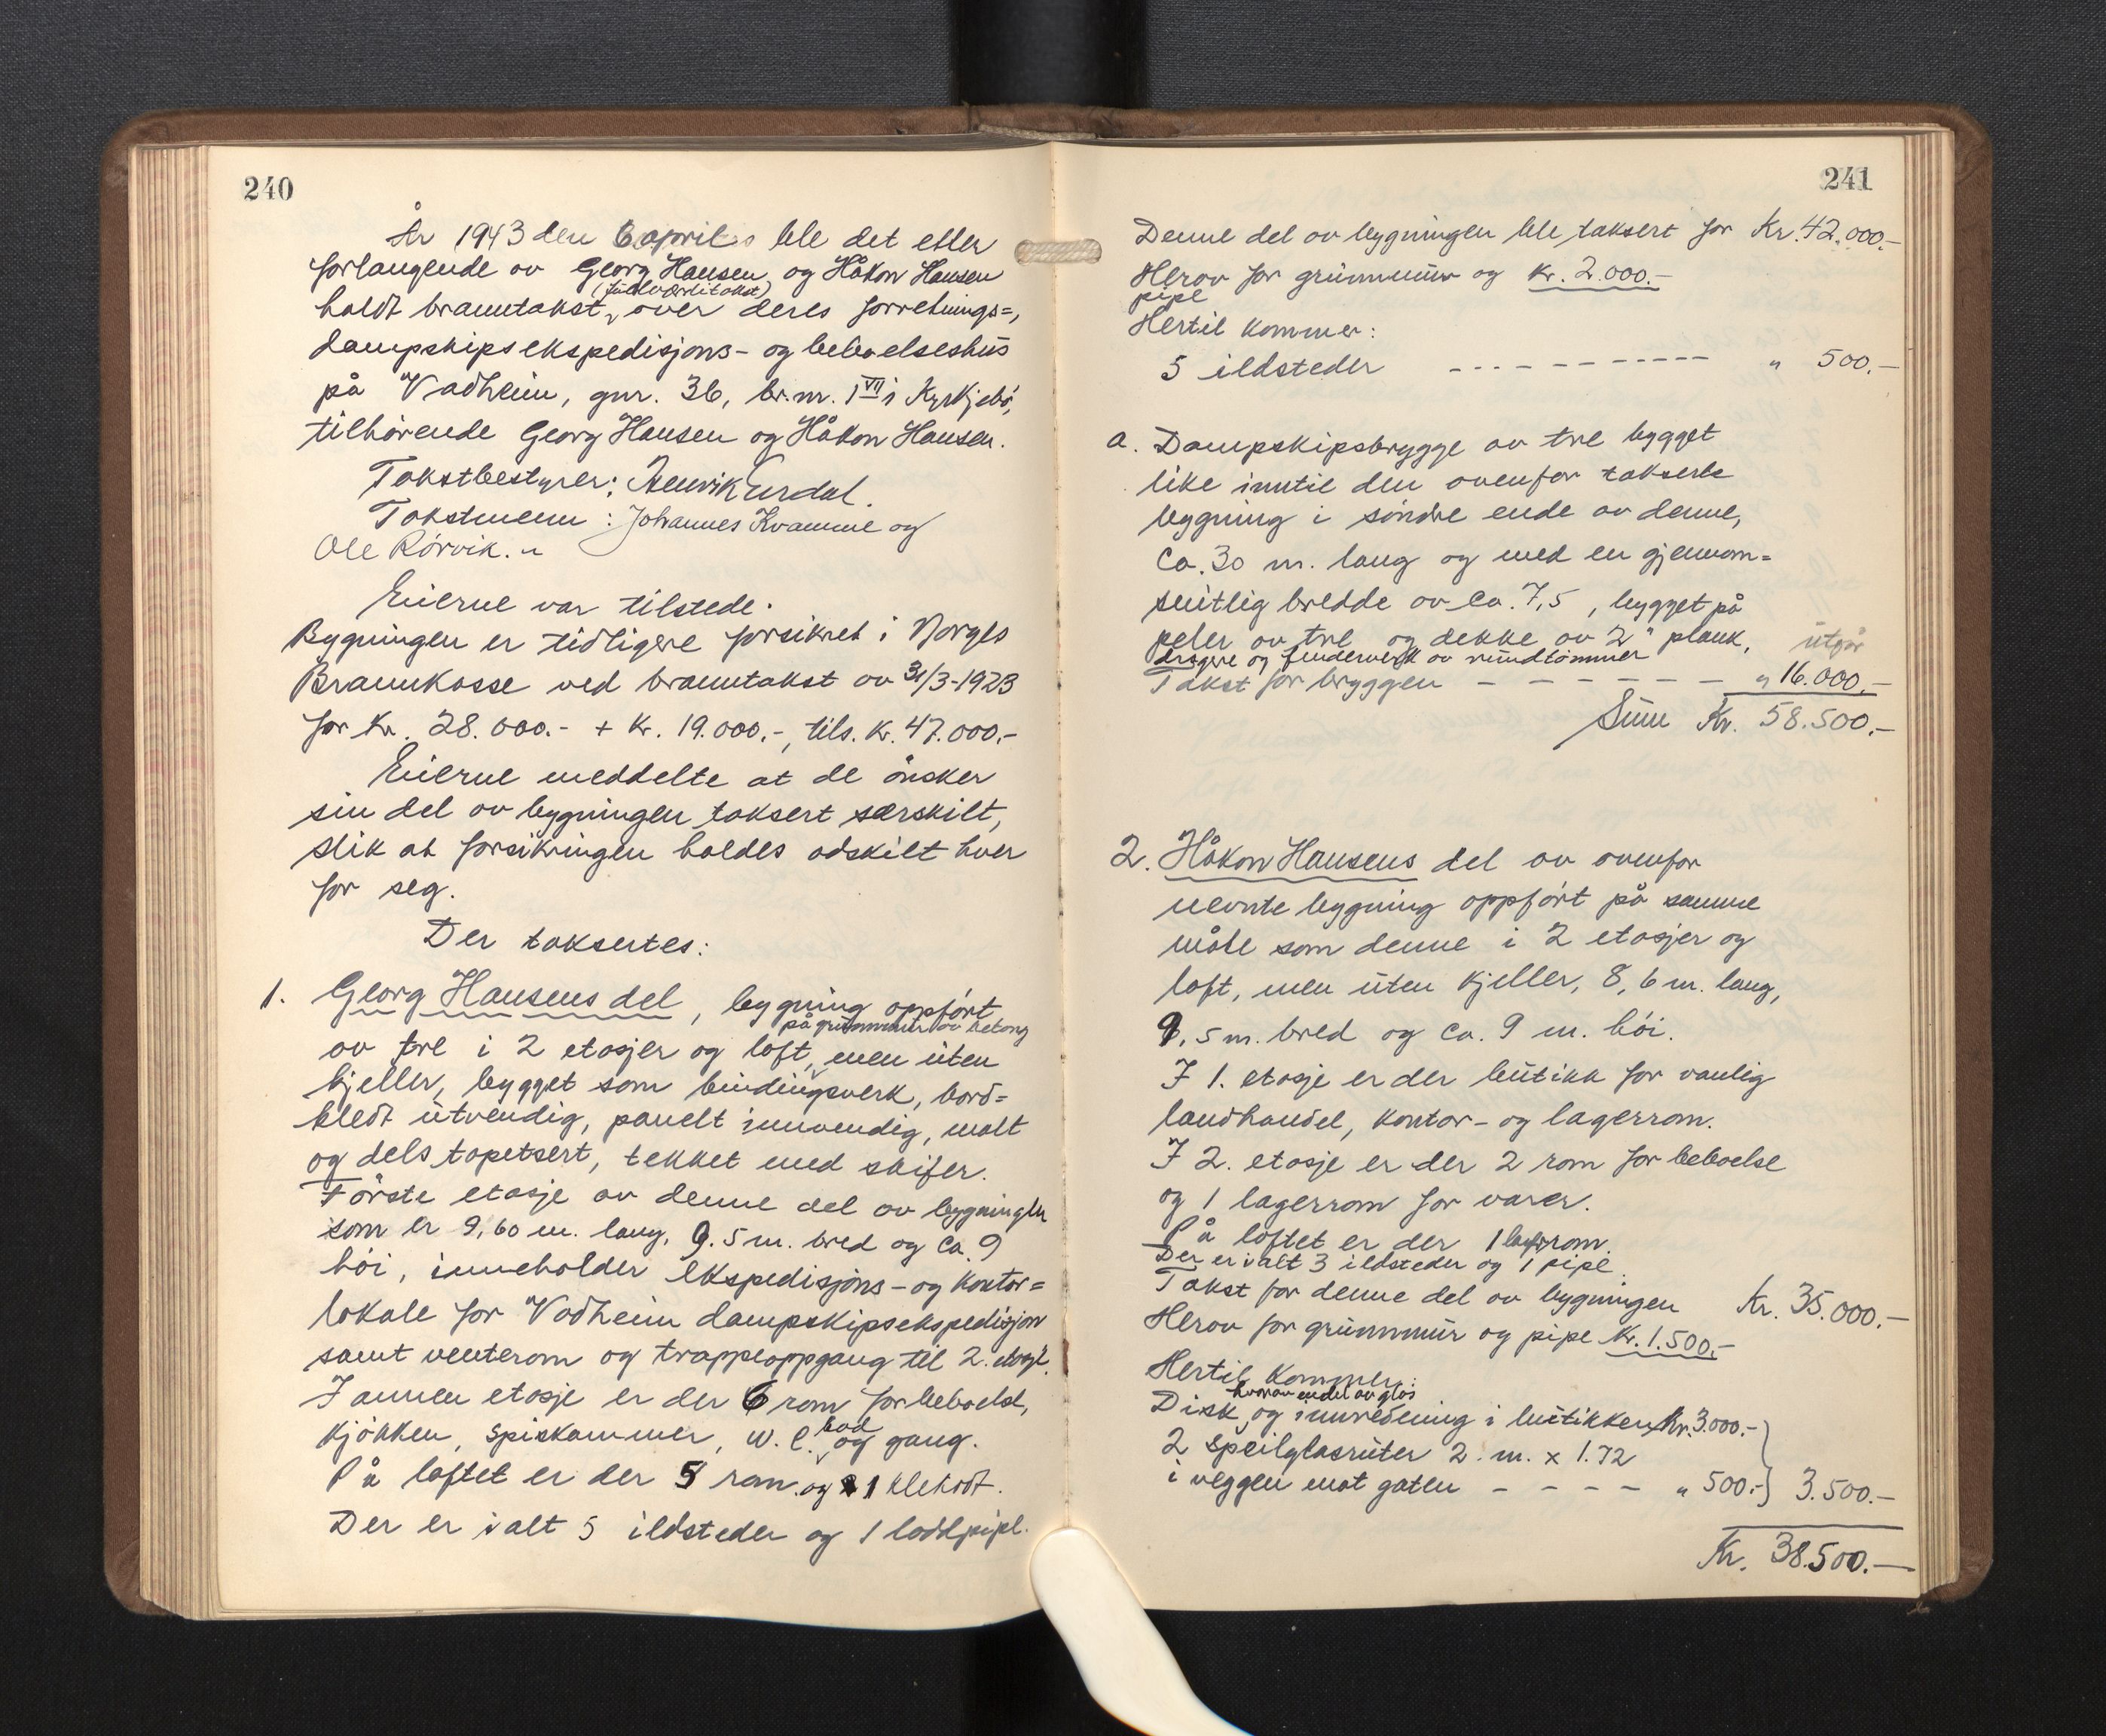 240
År 1943 den 6 april ble det etter
forlangende av Georg Hansen og Håkon Hansen
(fullverditakst)
holdt branntakst, over deres forretnings=,
dampskipsekspedisjons- og beboelseshus
på Vadheim, gnr. 36, br.nr. 1 VII i Kyrkjebø,
tilhørende Georg Hansen og Håkon Hansen.
Takstbestyrer: HenrikUrdal.
Takstmenn : Johannes Kvamme og
Ole Rørvik.
Eierne var tilstede.
Bygningen er tidligere forsikret i Norges
Brannkasse ved branntakst av 31/3-1923
for kr. 28.000.- + kr. 19.000.-, tils. kr. 47.000.-
Eierne meddelte at de ønsker
sin del av bygningen taksert særskilt,
slik at forsikringen holdes adskilt hver
for seg.
Der taksertes:
1. Georg Hansens del, bygning oppført
på grunnmur av betong
av tre i 2 etasjer og loft, men uten
kjeller, bygget som bindingsverk, bord=
kledt utvendig, panelt innvendig, malt
og dels tapetsert, tekket med skifer.
Første etasje av denne del av bygningen
som er 9,60 m. lang, 9.5 m. bred og ca. 9
høi, inneholder ekspedisjons- og kontor=
lokale for Vadheim dampskipsekspedisjon
samt venterom og trappeoppgang til 2. etasje.
I annen etasje er der 6 rom for beboelse,
kjøkken, spiskammer, W.C. bad og gang.
På loftet er der 5 rom og 1 klekott.
Der er i alt 5 ildsteder og 1 loddpipe.
241
Denne del av bygningen ble taksert for Kr. 42.000.-
Herav for grunnmur og kr. 2.000.-
pipe
Hertil kommer:
5 ildsteder - - - - - - - - - " 500.-
a. Dampskipsbrygge av tre bygget
like inntil den ovenfor takserte
bygning i søndre ende av denne,
ca. 30 m. lang og med en gjennom=
snitlig bredde av ca. 7,5 , bygget på
peler av tre og dekke av 2" plank, utgår
dragere og fenderverk av rundtømmer
Takst for bryggen - - - - - - " 16.000.-
Sum Kr. 58.500.-
2. Håkon Hansens del av ovenfor
nevnte bygning oppført på samme
måte som denne i 2 etasjer og
loft, men uten kjeller, 8,6 m. lang,
9,5 m. bred og ca. 9 m. høi.
I 1. etasje er der butikk for vanlig
landhandel, kontor- og lagerrom.
I 2. etasje er der 2 rom for beboelse
og 1 lagerrom for varer.
På loftet er der 1 lagerrom.
Der er i alt 3 ildsteder og 1 pipe.
Takst for denne del av bygningen Kr. 35.000.-
Herav for grunnmur og pipe kr. 1.500.-
Hertil kommer:
hvorav endel av glas
Disk og innredning i butikken kr. 3.000.-
2 speilglasruter 2. m. x 1.72
i veggen mot gaten - - - - " 500.-} 3.500.-
Kr. 38.500.-